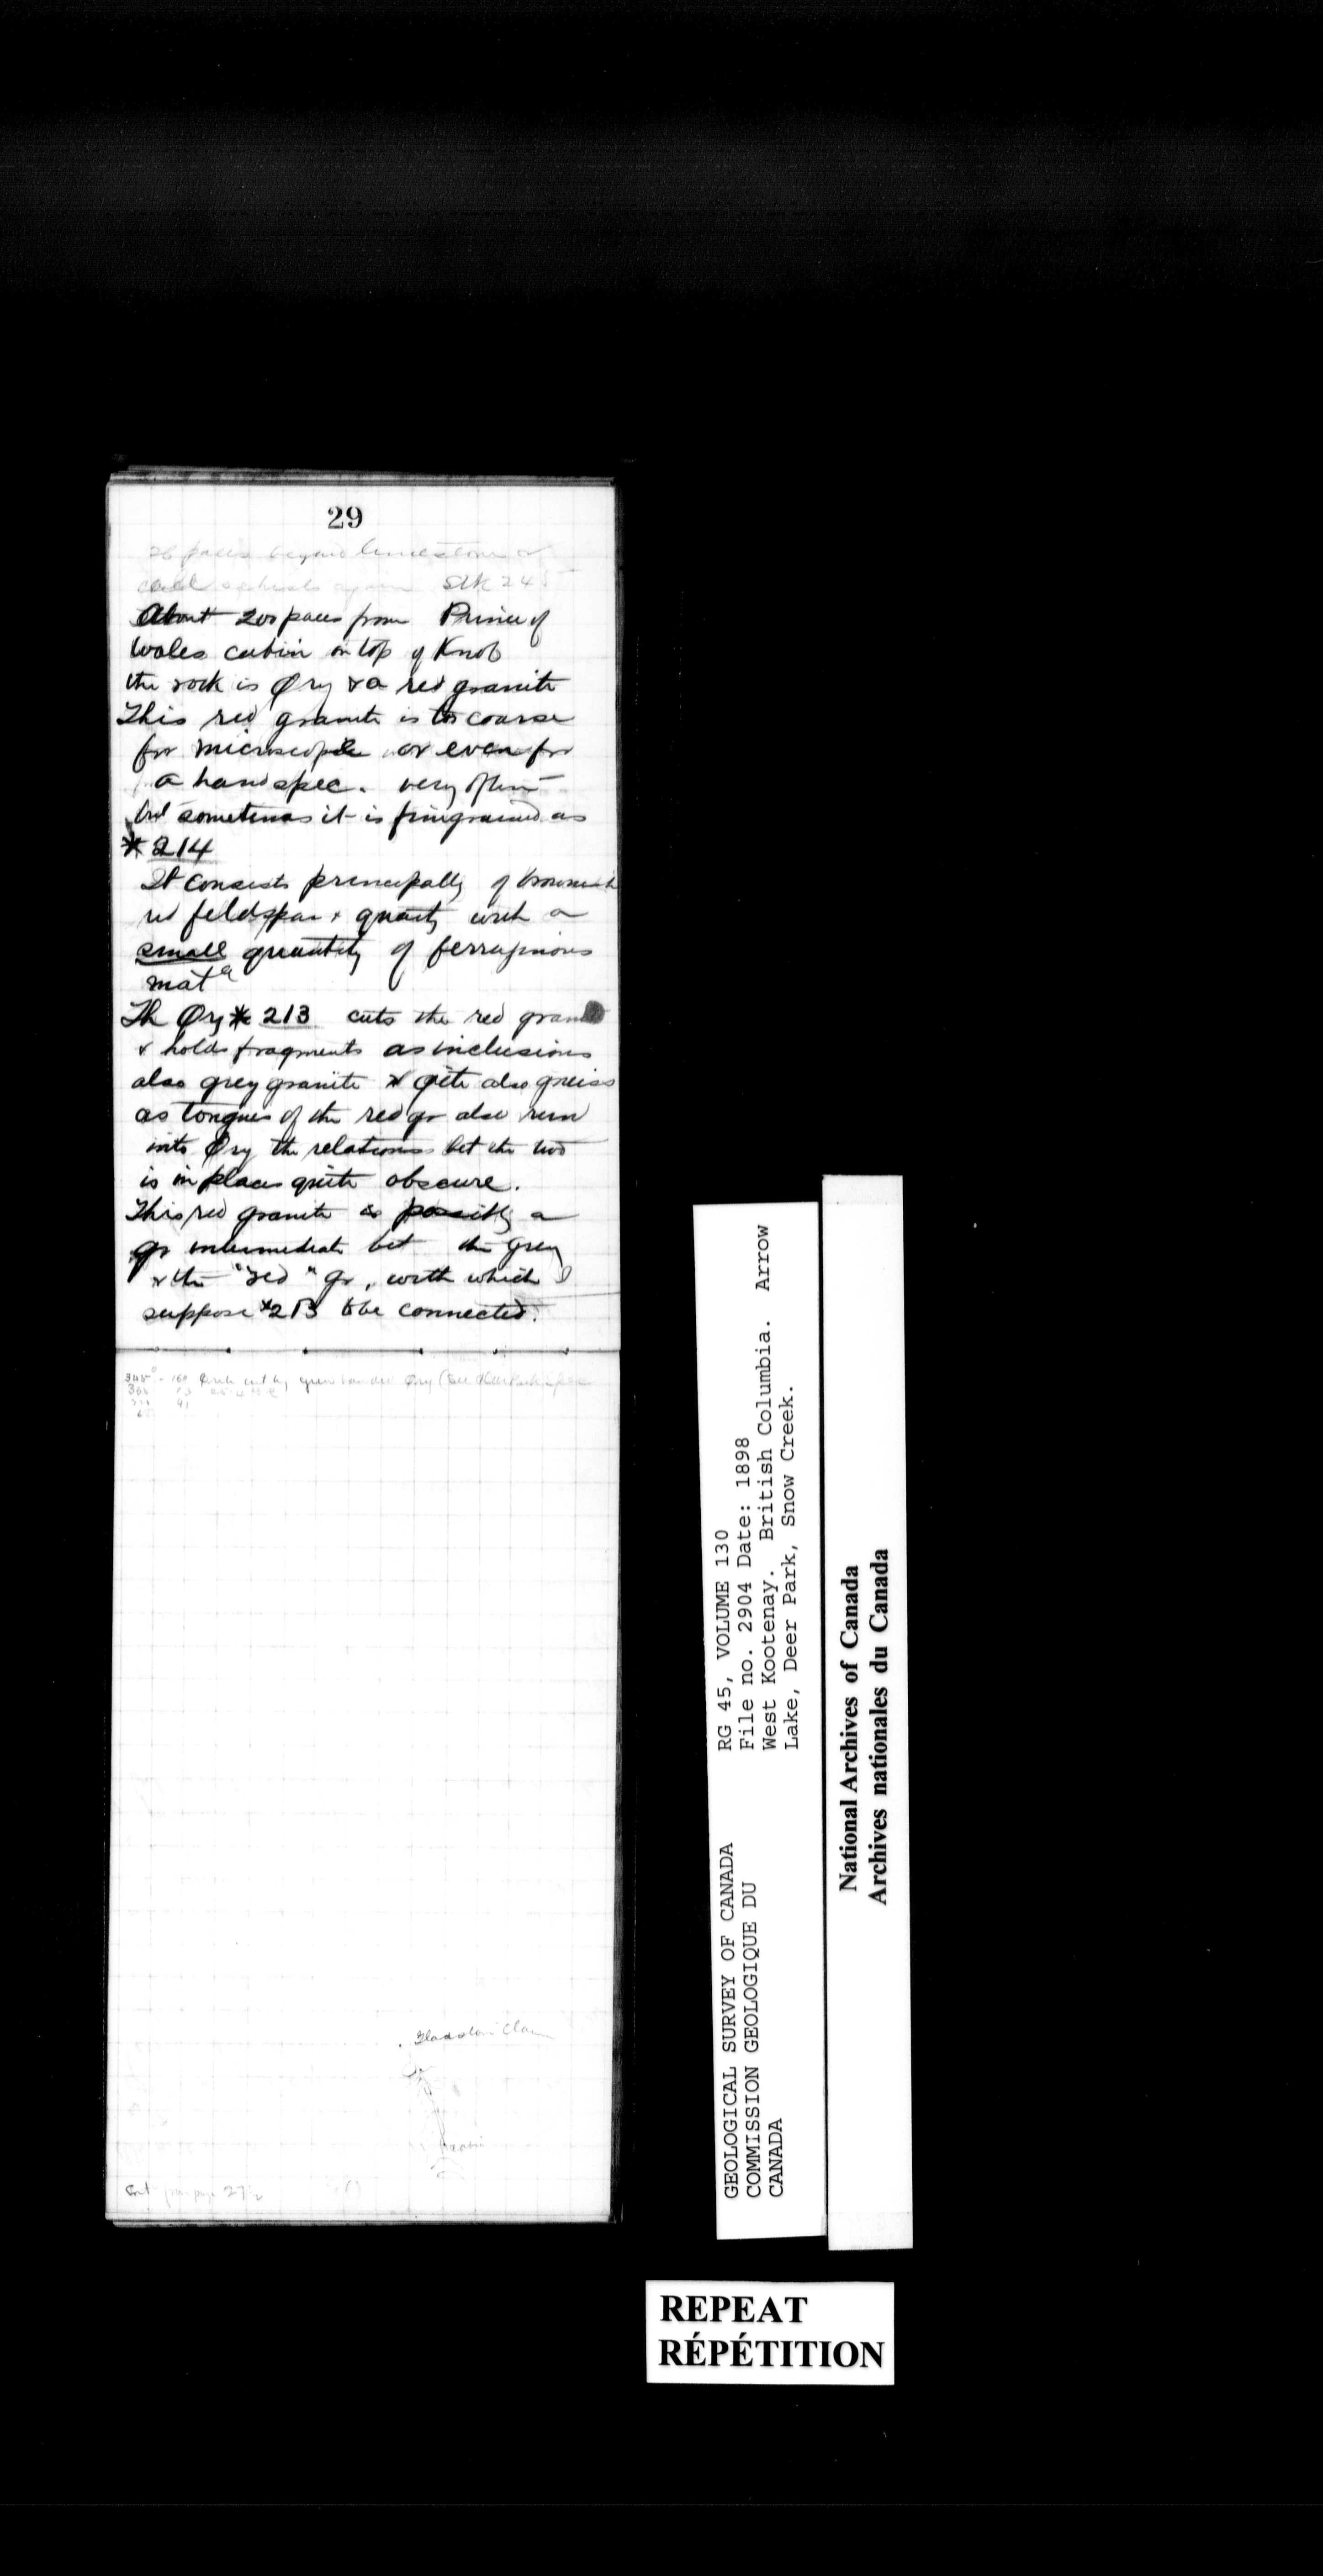 29
26 paces beyond limestone &
schists again Stk 245
About 200 paces from Prince of
Wales cabin on top of Knob
the rock is Ory & a red granite
This red granite is too coarse
for microscope or even for
a handspec. very often
but sometimes it is finegrained as
* 214
It consists principally of brownish
red feldspar & quartz with a
small quantity of ferruginous
mat
Th Ory * 213 cuts the red granite
& holds fragments as inclusions
also grey granite & qite also gneiss
as tongues of the red gr also run
into Ory the relations bet the two
is in places quite obscure.
This red granite is possibly a
gr intermediate bet the grey
& the "red" gr, with which I
suppose *213 to be connected.
345 - 160 cut by green banded Ory (See
Gladstone Claim
cabin
Cont from page 27
RG 45, VOLUME 130
File no. 2904 Date: 1898
West Kootenay. British Columbia. Arrow
Lake, Deer Park, Snow Creek.
GEOLOGICAL SURVEY OF CANADA
COMMISSION GEOLOGIQUE DU
CANADA
National Archives of Canada
Archives nationales du Canada
REPEAT
RÉPÉTITION